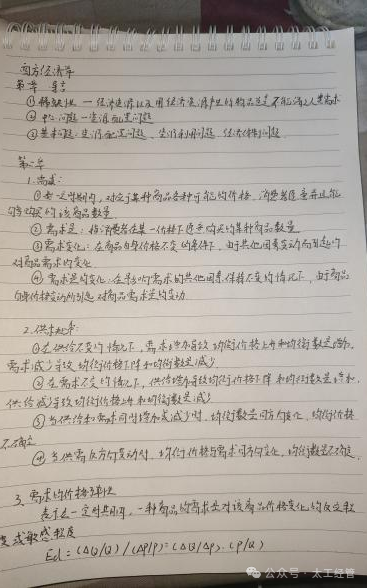 西方经济学
第一章 导言
①稀缺性 — 经济资源以及用经济资源产出的物品总是不能满足人类需求
②中心问题 — 资源配置问题
③基本问题：资源配置问题、资源利用问题、经济体制问题
第二章
1.需求：
①在一定时期内，对应于某种商品各种可能的价格，消费者愿意并且能
够购买的该商品数量
②需求量：指消费者在某一价格下愿意购买的某种商品数量
③需求变化：在商品自身价格不变的条件下，由于其他因素变动而引起的
对商品需求的变化
④需求量的变化：在影响需求的其他因素保持不变的情况下，由于商品
自身价格变动所引起对商品需求量的变动
2.供求
①在供给不变的情况下，需求增加导致均衡价格上升和均衡数量增加，
需求减少导致均衡价格下降和均衡数量减少
②在需求不变的情况下，供给增加导致均衡价格下降和均衡数量增加，
供给减少导致均衡价格上升和均衡数量减少
③当供给和需求同时增加或减少时，均衡数量同方向变化，均衡价格
不确定
④当供需反方向变动时，均衡价格与需求同方向变化，均衡数量不确定
3.需求的价格弹性
表示在一定时期内，一种商品的需求量对该商品价格变化的反应程
度或敏感程度
Ed=(ΔQ/Q)/(ΔP/P)=(ΔQ/ΔP)·(P/Q)
公众号·太工经管